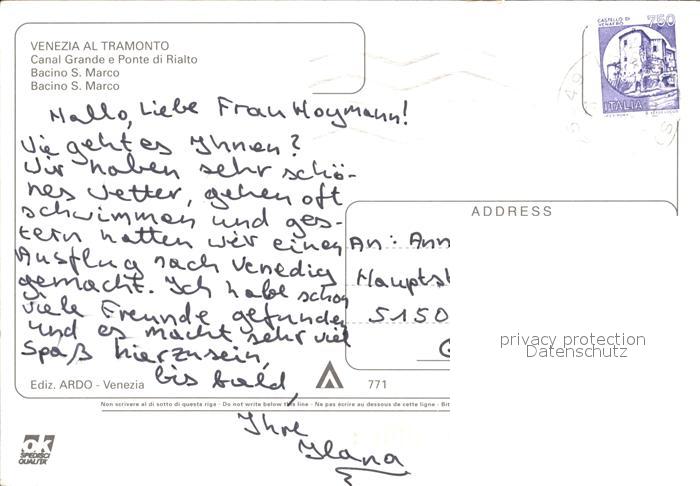 VENEZIA AL TRAMONTO
Canal Grande e Ponte di Rialto
Bacino S. Marco
Bacino S. Marco
CASTELLO DI VENAFRO
750
ITALIA
Hallo, Liebe Frau Hoymann!
Wie geht es Ihnen?
Wir haben sehr schö-
nes Wetter, gehen oft
schwimmen und ges-
tern hatten wir einen
Ausflug nach Venedig
gemacht. Ich habe schon
viele Freunde gefunden
und es macht sehr viel
Spaß hierzusein,
bis bald,
Ihre
Ilana
ADDRESS
An: Ann
Haupts
5150
privacy protection
Datenschutz
Ediz. ARDO - Venezia
771
Non scrivere al di sotto di questa riga - Do not write below this line - Ne pas écrire au dessous de cette ligne - Bit
ok
SPEDISCI
QUALITA'